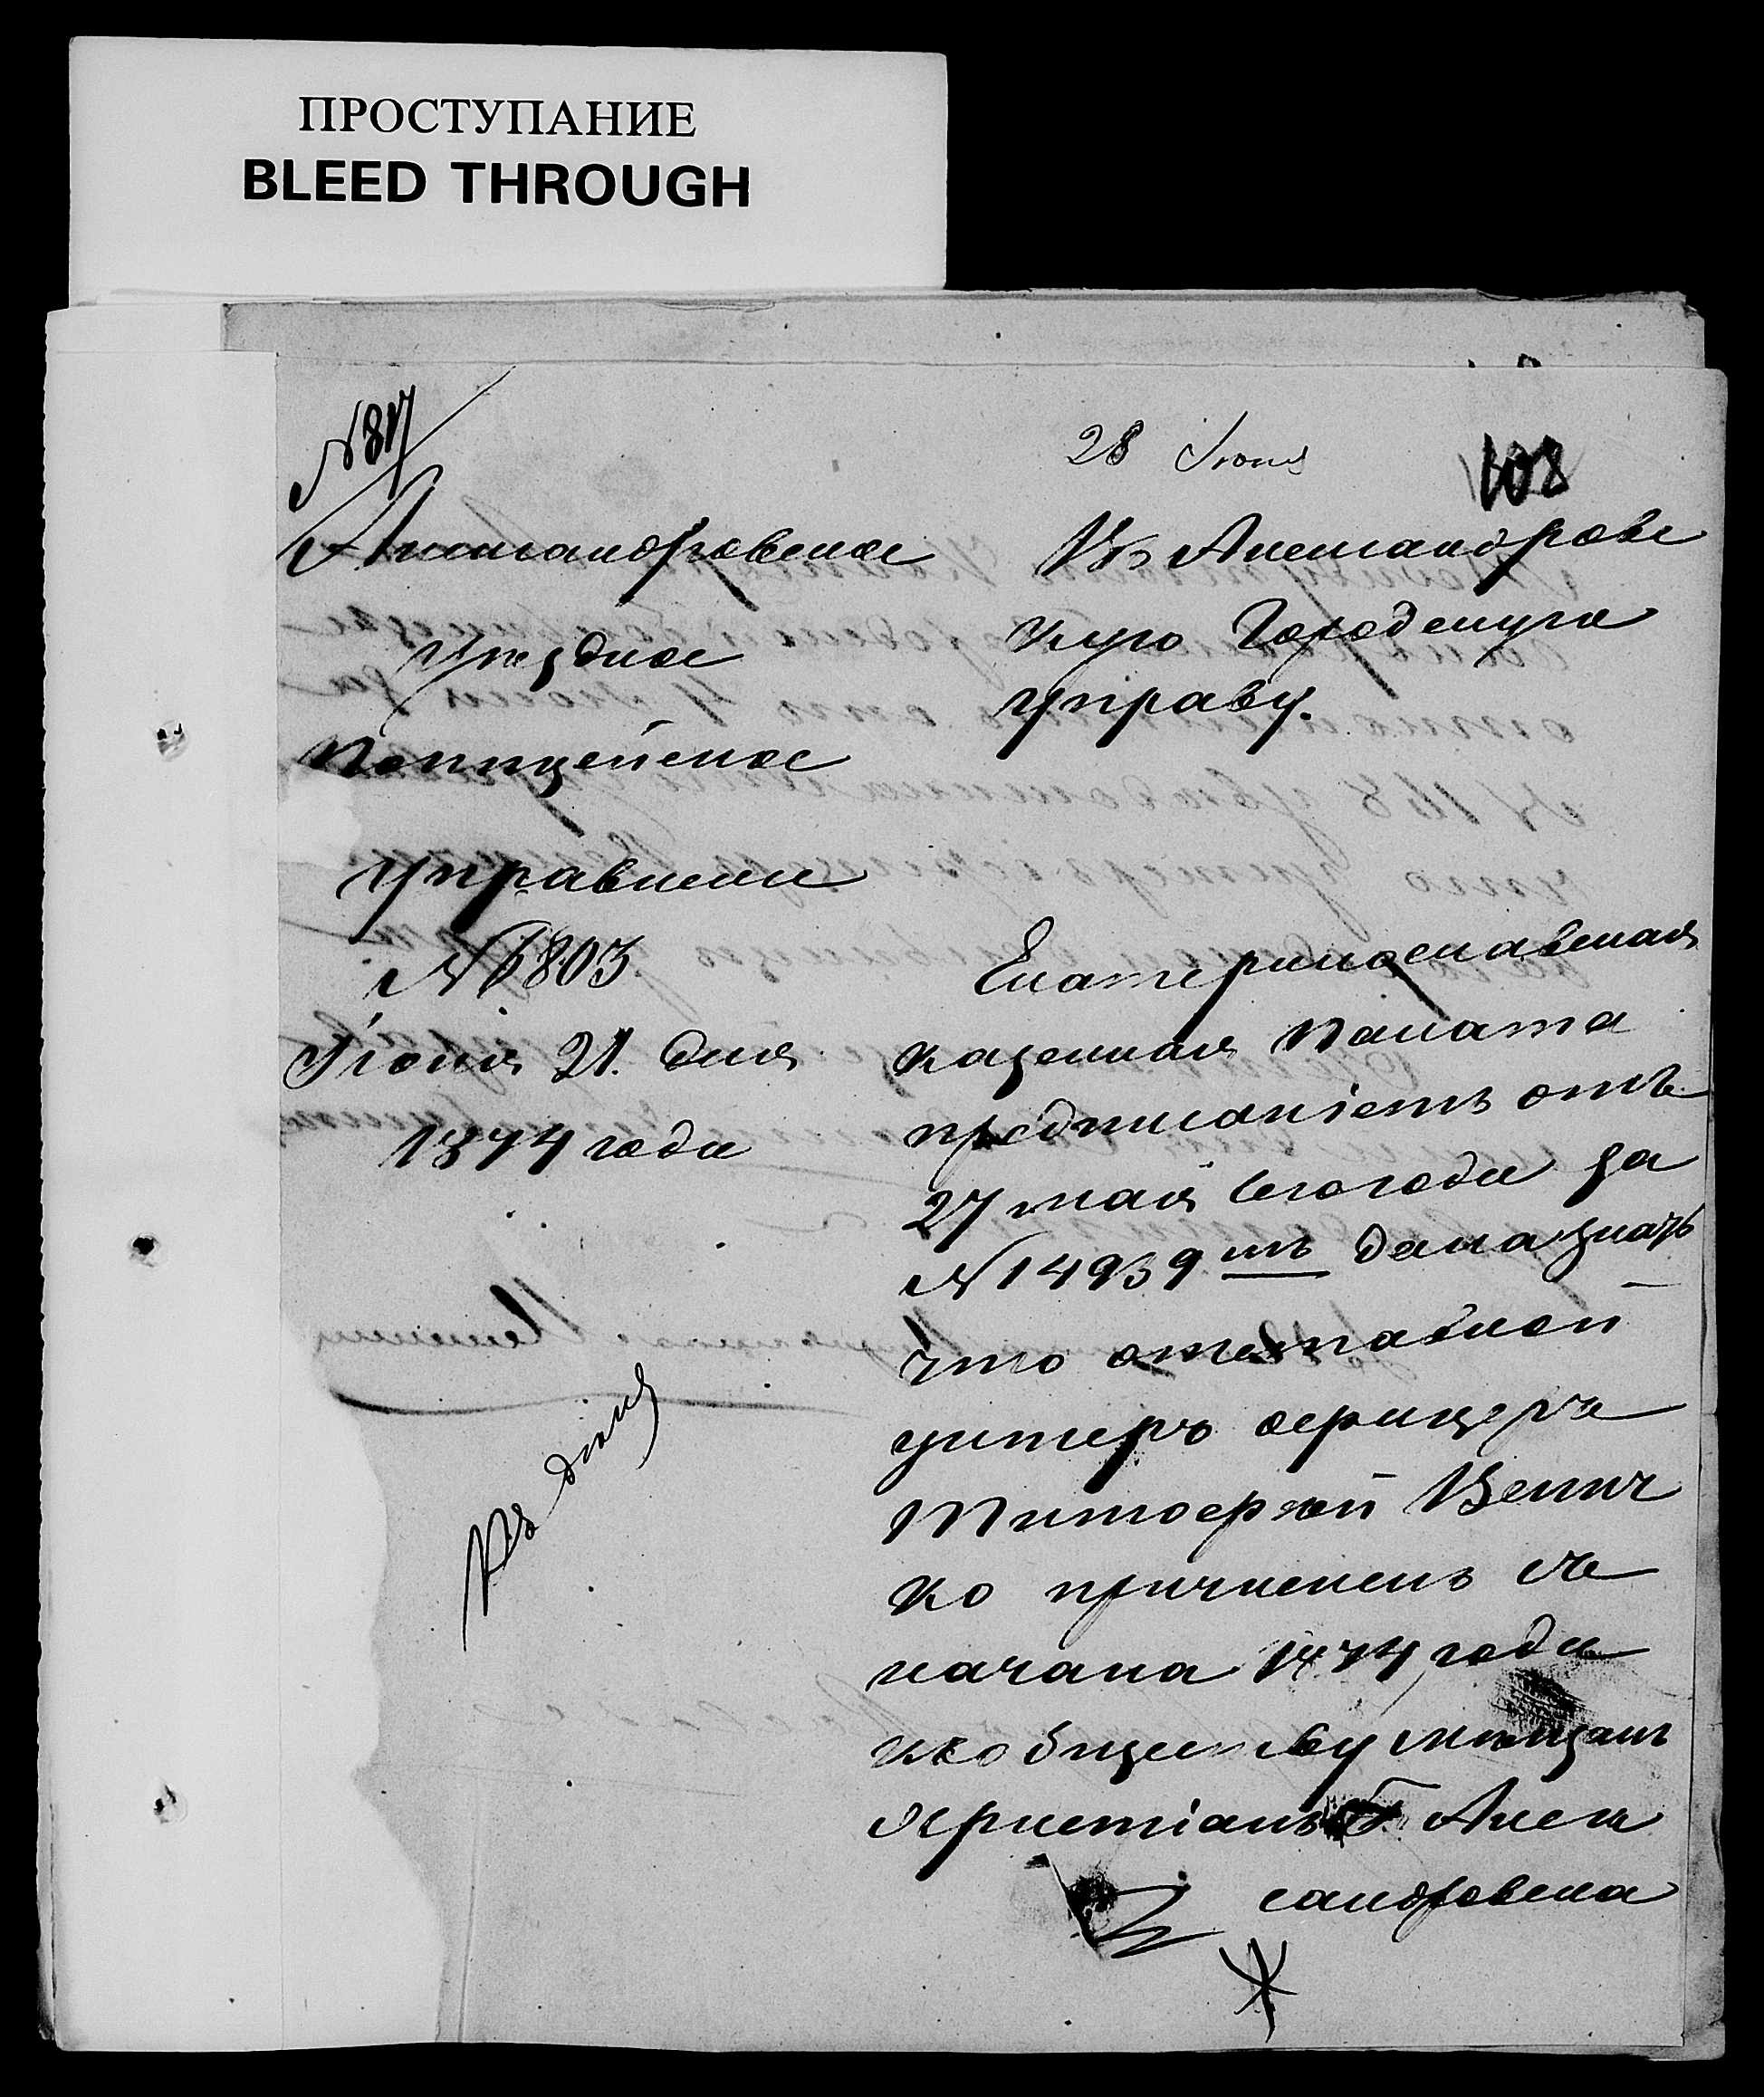 ПРОСТУПАНИЕ
BLEED THROUGH
№ 817
28 Июня
108
Александровское
Уѣздное
Полицейское
Управленіе
№ 6803.
Іюня 21. дня
1874 года
Къ дѣлу
Въ Александровс
кую Городскую
Управу.
Екатеринославская
казенная палата
предписаніемъ отъ
27 мая сего года за
№ 14939 мъ дала знать
что отставной
унтеръ офицеръ
Тимофей Велич
ко причисленъ съ
начала 1874 года
къ обществу мѣщанъ
христіанъ г. Алек
сандровска